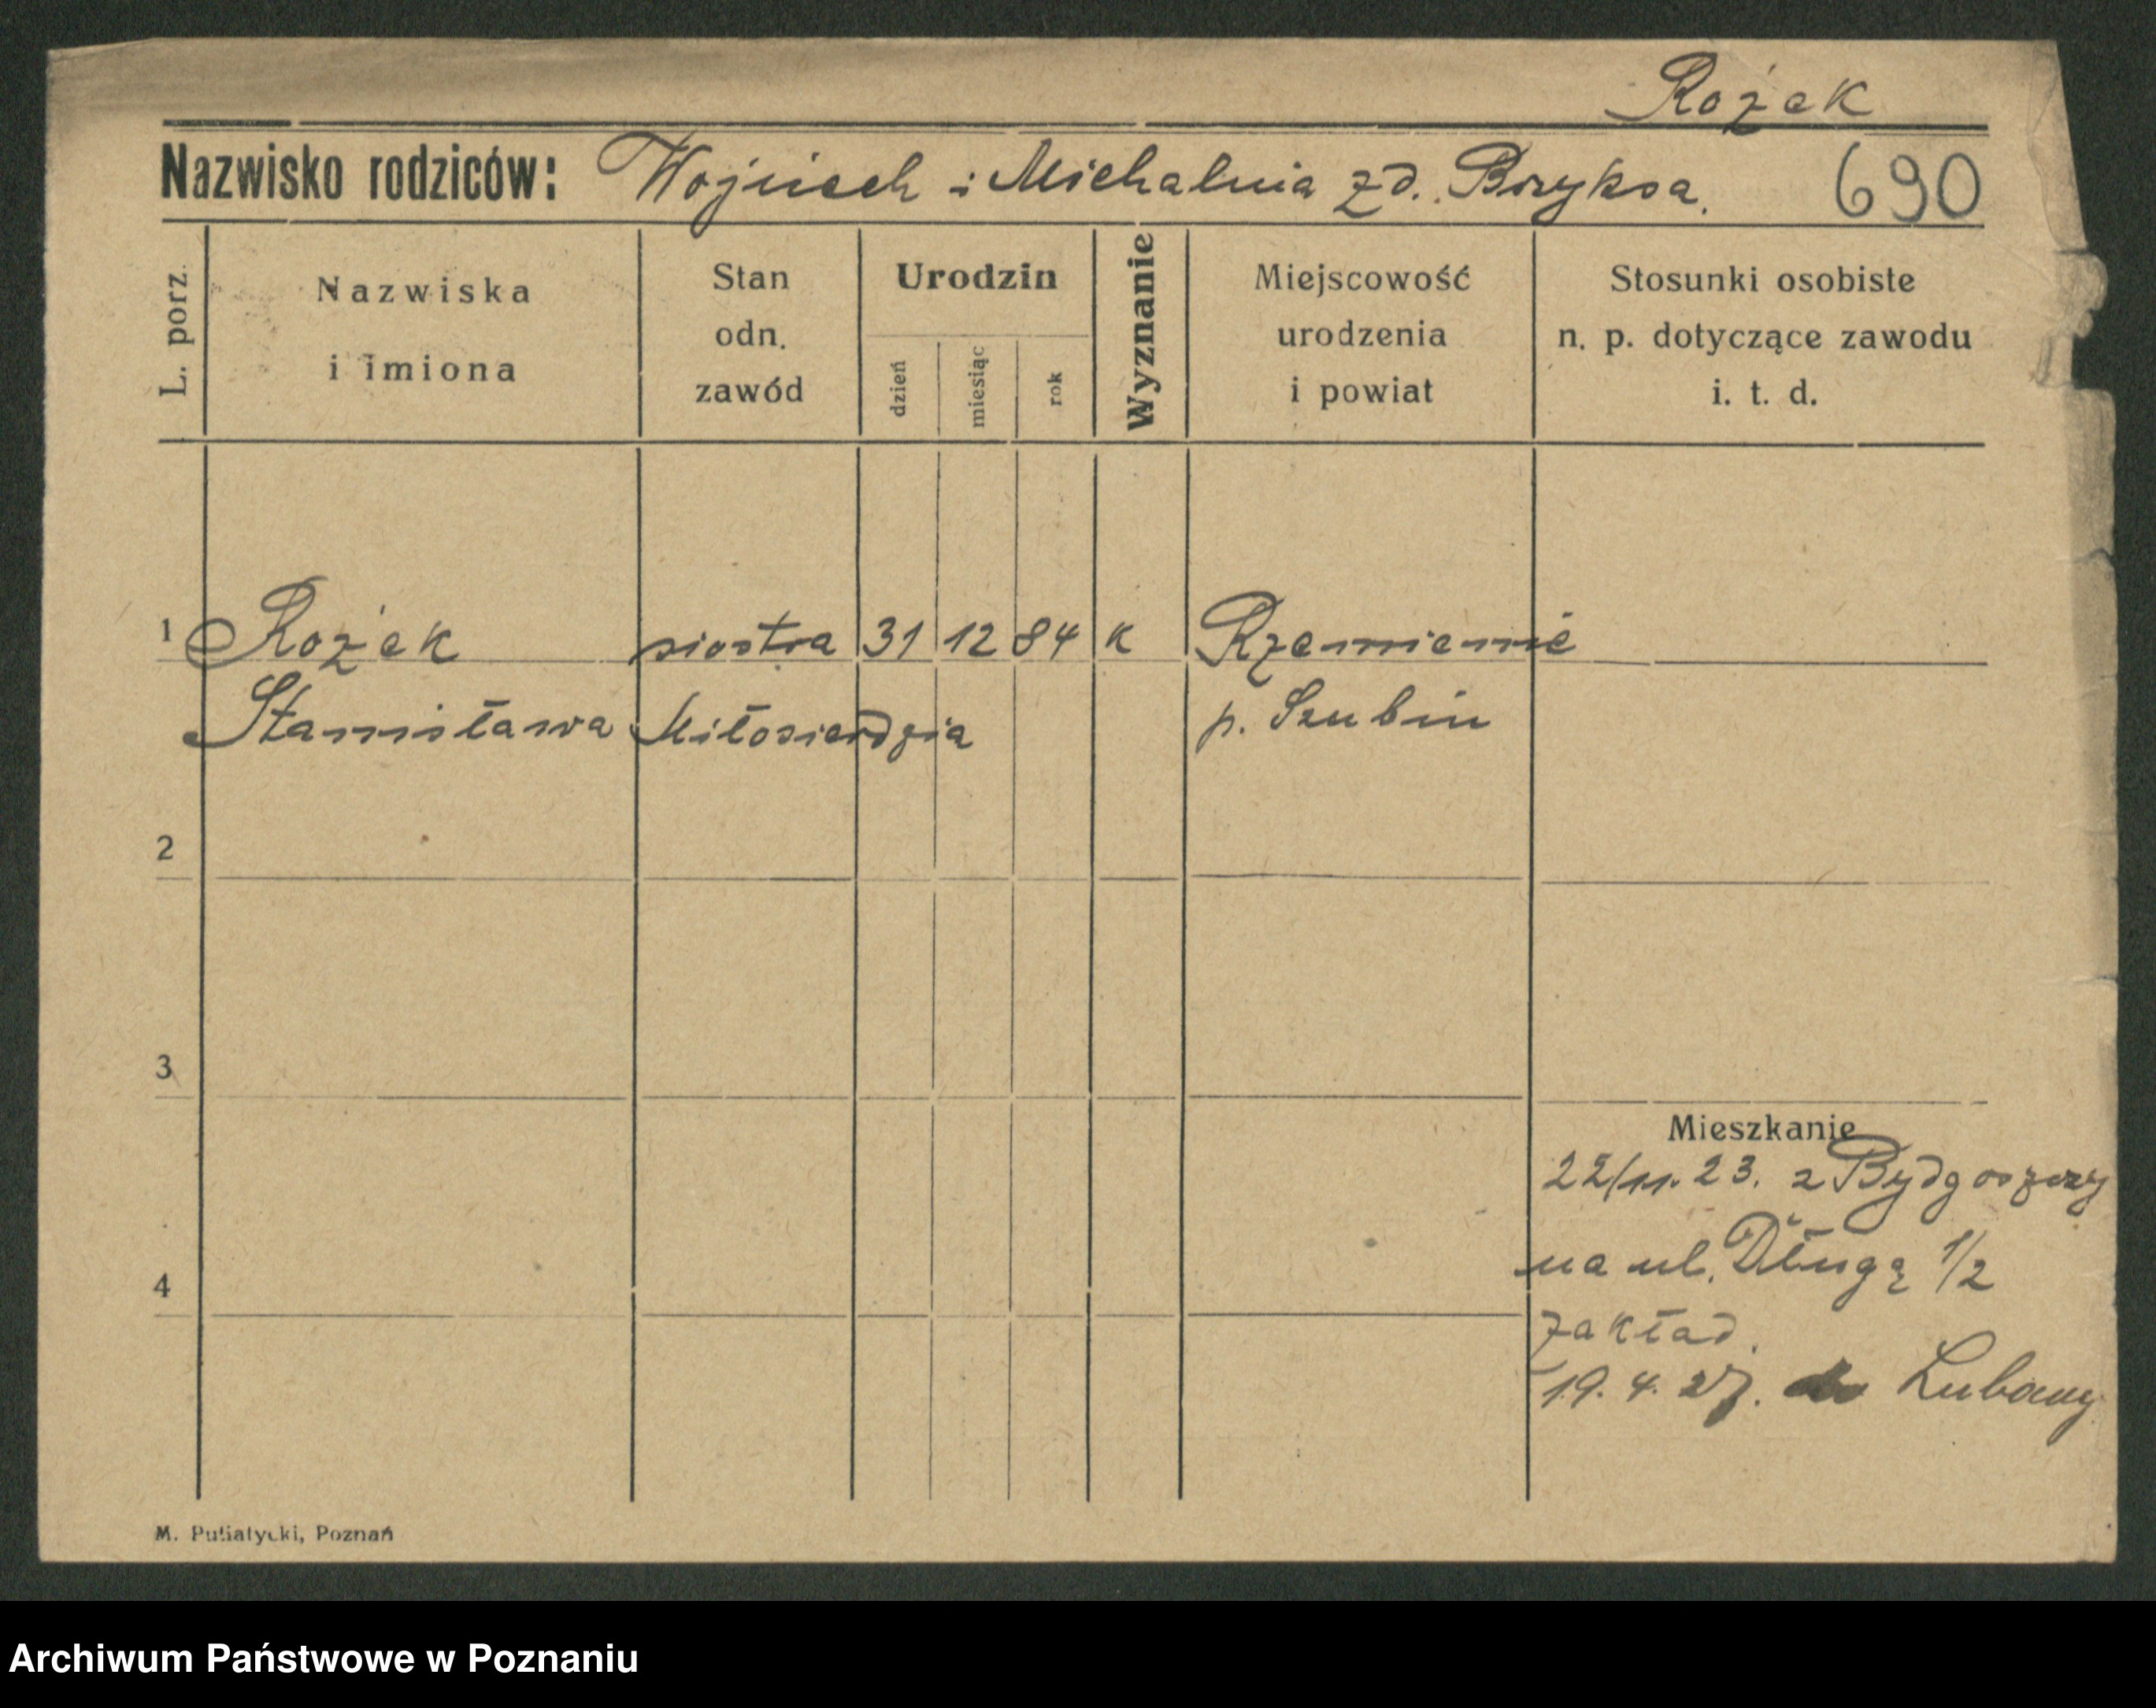 Rożek
Nazwisko rodziców: Wojciech i Michalnia zd. Bryksa. 690
L. porz.
Nazwiska
i imiona
Stan
odn.
zawód
Urodzin
dzień
miesiąc
rok
Wyznanie
Miejscowość
urodzenia
i powiat
Stosunki osobiste
n. p. dotyczące zawodu
i. t. d.
1 Rożek siostra 31 12 84 k Rzemienie
Stanisława Miłosierdzia p. Szubin
2
3
Mieszkanie
22/11. 23. z Bydgoszczy
na ul. Długą 1/2
4
zakład.
19. 4. 27. do
M. Putiatycki, Poznań
Archiwum Państwowe w Poznaniu